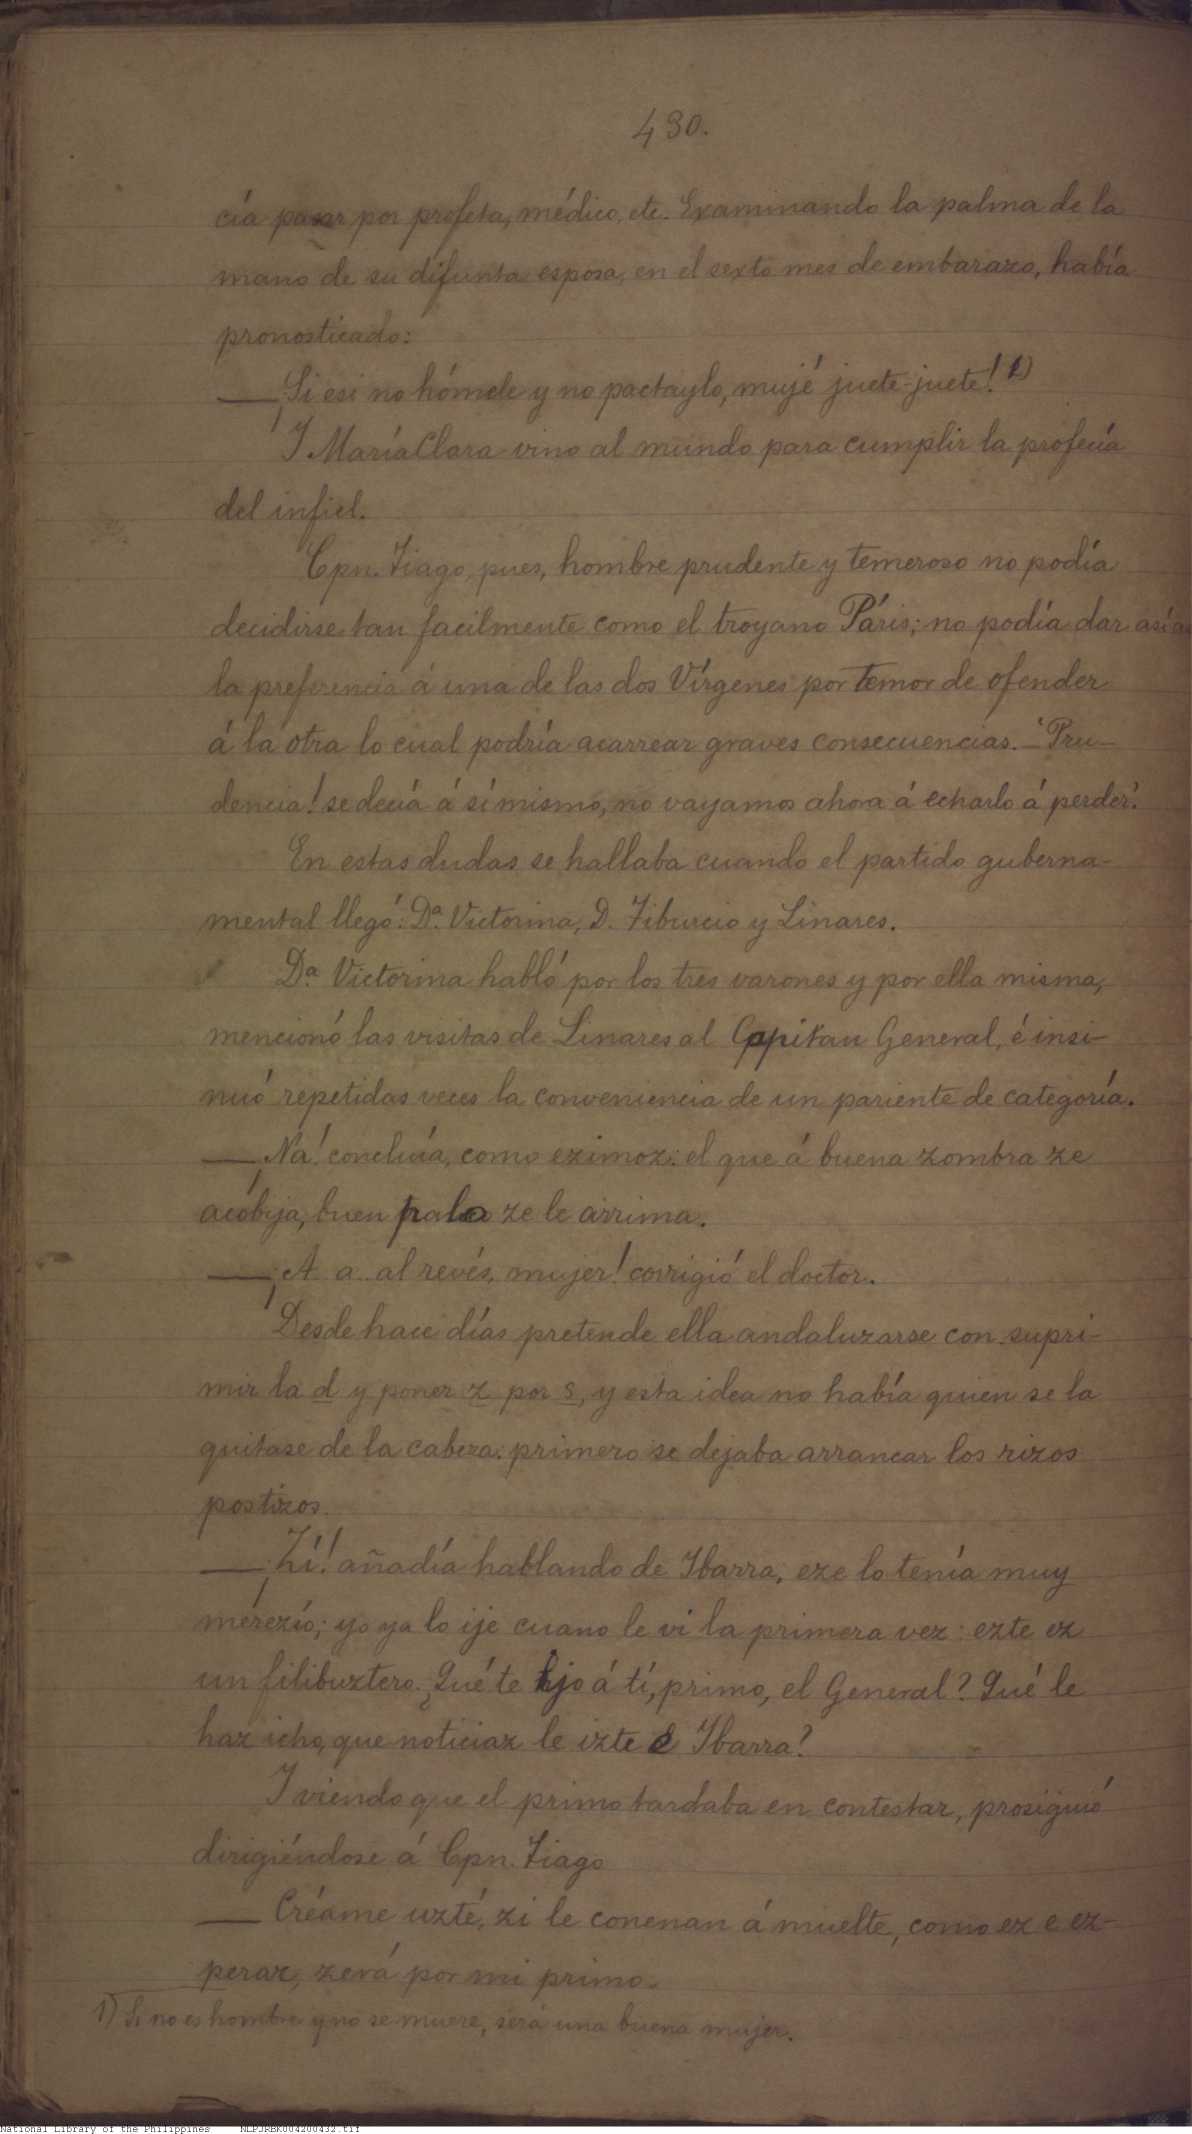 430.
cía pasar por profeta, médico, etc. Examinando la palma de la
mano de su difunta esposa, en el sexto mes de embarazo, había
pronosticado:
— ¡Si esi no hómele y no pactaylo, mujé juete-juete! 1)
Y María Clara vino al mundo para cumplir la profecía
del infiel.
Cpn. Tiago, pues, hombre prudente y temeroso no podía
decidirse tan facilmente como el troyano Páris; no podía dar así
la preferencia á una de las dos Vírgenes por temor de ofender
á la otra lo cual podría acarrear graves consecuencias. — "Pru-
dencia! se decía á sí mismo, no vayamos ahora á echarlo á perder."
En estas dudas se hallaba cuando el partido guberna-
mental llegó: Dª. Victorina, D. Tiburcio y Linares.
Dª. Victorina habló por los tres varones y por ella misma,
mencionó las visitas de Linares al Capitan General, é insi-
nuó repetidas veces la conveniencia de un pariente de categoría.
— ¡Ná! concluía, como ezimoz: el que á buena zombra ze
acobija, buen palo ze le arrima.
— ¡A.. a.. al revés, mujer! corrigió el doctor.
Desde hace días pretende ella andaluzarse con supri-
mir la d y poner z por s, y esta idea no había quien se la
quitase de la cabeza: primero se dejaba arrancar los rizos
postizos.
— ¡Zí! añadía hablando de Ibarra; eze lo tenía muy
merezío; yo ya lo ije cuano le vi la primera vez: ezte ez
un filibuztero. ¿Qué te ijo á tí, primo, el General? Qué le
haz icho, que noticiaz le izte e Ibarra?
Y viendo que el primo tardaba en contestar, prosiguió
dirigiéndose á Cpn. Tiago
— Créame uzté, zi le conenan á muelte, como ez e ez-
peraz, zerá por mi primo.
1) Si no es hombre y no se muere, será una buena mujer.
National Library of the Philippines NLPJRBK004200432.tif